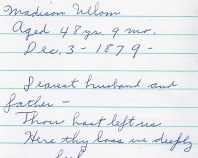 Madison Ullom
Aged 48 yr 9 mo.
Dec. 3 - 1879 -
Dearest husband and
father -
Thou hast left us
Here thy loss we deeply
feel